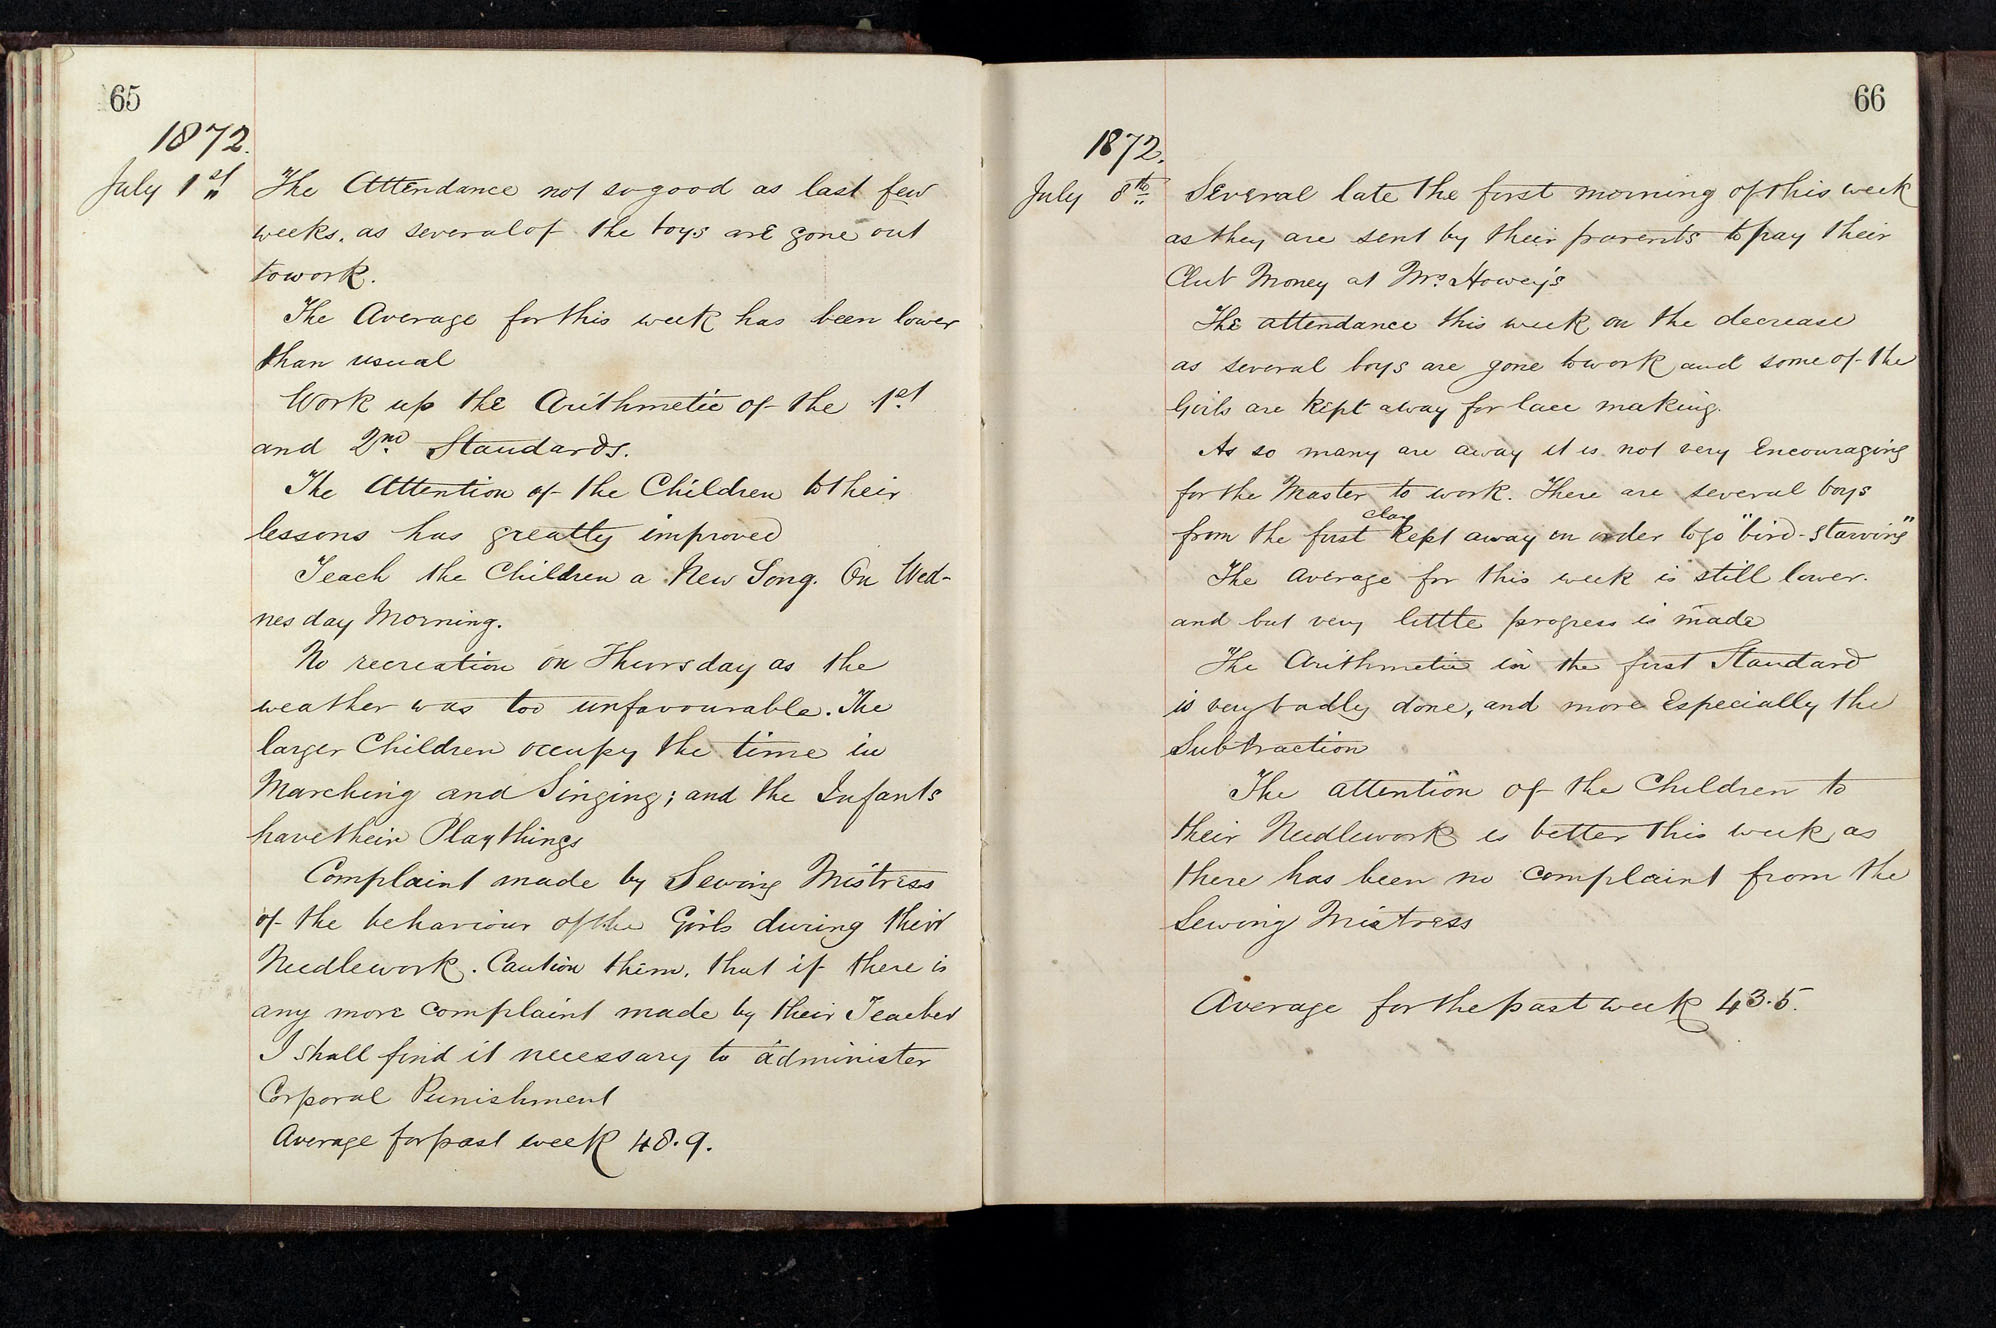 65
1872.
July 1st The Attendance not so good as last few
weeks, as several of the boys are gone out
to work.
The Average for this week has been lower
than usual
Work up the Arithmetic of the 1st
and 2nd Standards.
The Attention of the Children to their
lessons has greatly improved
Teach the Children a New Song. On Wed-
nesday Morning.
No recreation on Thursday as the
weather was too unfavourable. The
larger Children occupy the time in
Marching and Singing; and the Infants
have their Playthings
Complaint made by Sewing Mistress
of the behaviour of the Girls during their
Needlework. Caution them, that if there is
any more complaint made by their Teacher
I shall find it necessary to administer
Corporal Punishment
Average for past week 48.9.
66
1872.
July 8th Several late the first morning of this week
as they are sent by their parents to pay their
Club Money at Mrs. Howey's
The attendance this week on the decrease
as several boys are gone to work and some of the
Girls are kept away for lace making.
As so many are away it is not very Encouraging
for the Master to work. There are several boys
from the first class kept away in order to go "bird-starving"
The average for this week is still lower.
and but very little progress is made
The Arithmetic in the first Standard
is very badly done, and more Especially the
Subtraction
The attention of the Children to
their Needlework is better this week as
there has been no complaint from the
Sewing Mistress
Average for the past week 43.5.